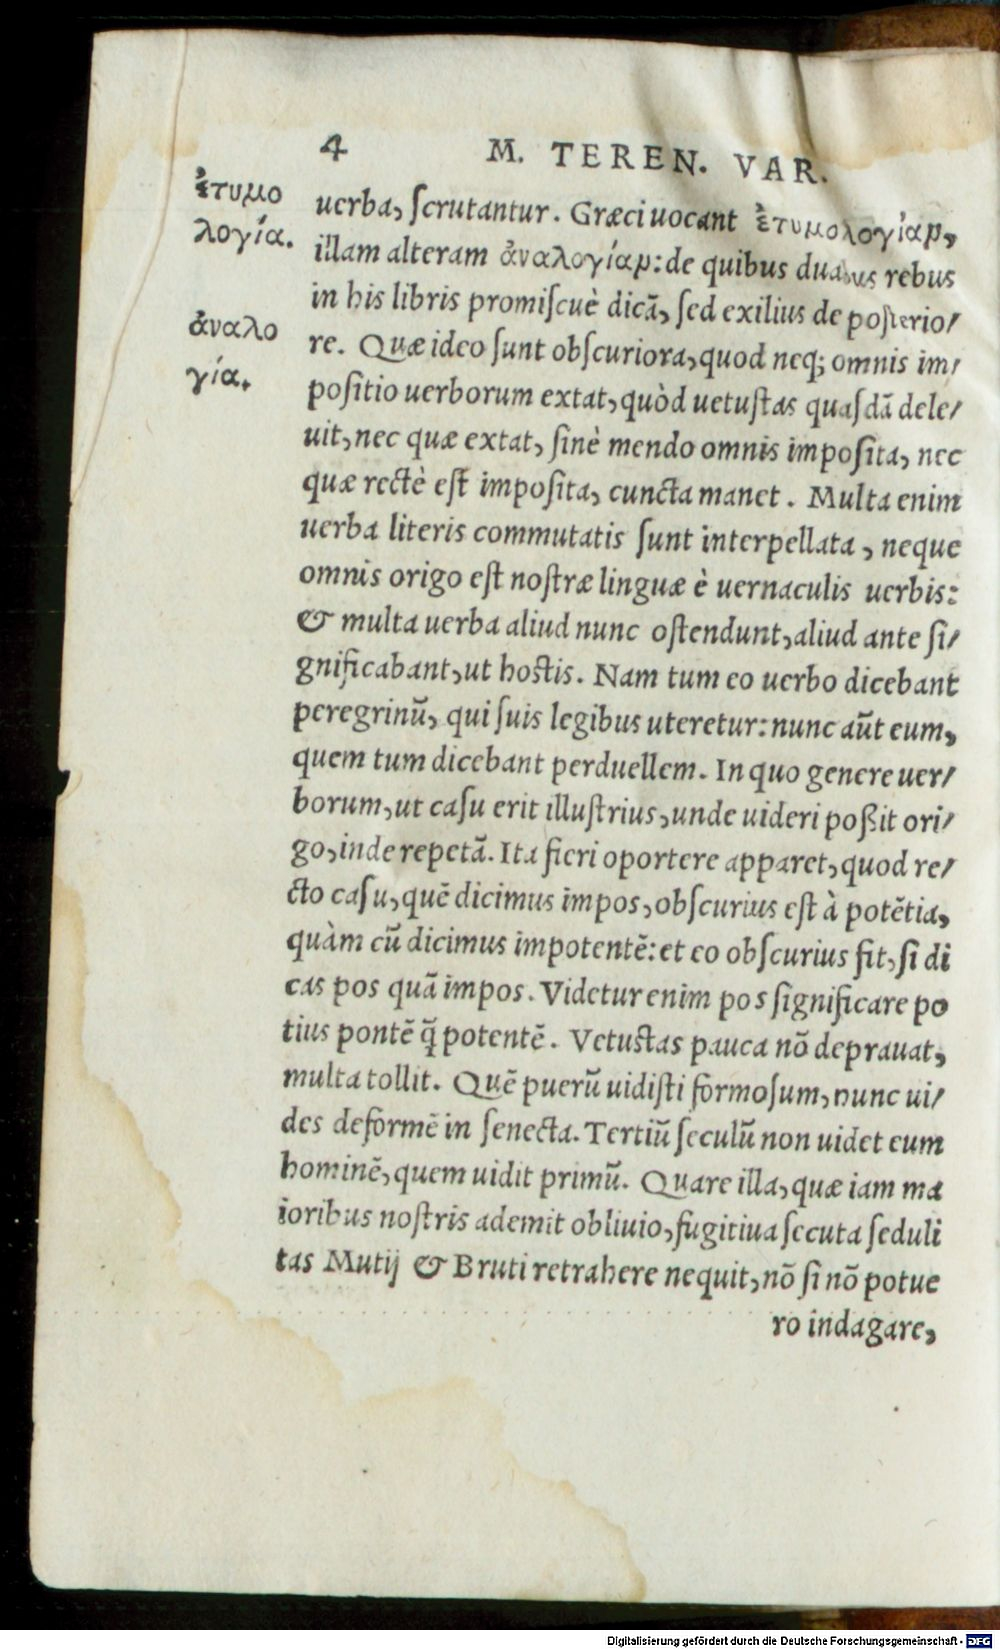 4 M. TEREN. VAR.
ἐτυμο
λογία.
ἀναλο
γία.
uerba, ſcrutantur. Græci uocant ἐτυμολογίαν,
illam alteram ἀναλογίαν: de quibus duabus rebus
in his libris promiſcuè dicã, ſed exilius de poſterio/
re. Quæ ideo ſunt obſcuriora, quod neq; omnis im/
poſitio uerborum extat, quòd uetuſtas quaſdã dele/
uit, nec quæ extat, ſinè mendo omnis impoſita, nec
quæ rectè eſt impoſita, cuncta manet. Multa enim
uerba literis commutatis ſunt interpellata, neque
omnis origo eſt noſtræ linguæ è uernaculis uerbis:
& multa uerba aliud nunc oſtendunt, aliud ante ſi/
gnificabant, ut hoſtis. Nam tum eo uerbo dicebant
peregrinũ, qui ſuis legibus uteretur: nunc aũt eum,
quem tum dicebant perduellem. In quo genere uer/
borum, ut caſu erit illuſtrius, unde uideri poßit ori/
go, inde repetã. Ita fieri oportere apparet, quod re/
cto caſu, quẽ dicimus impos, obſcurius eſt à potẽtia,
quàm cũ dicimus impotentẽ: et eo obſcurius fit, ſi di
cas pos quã impos. Videtur enim pos ſignificare po
tius pontẽ q̃ potentẽ. Vetuſtas pauca nõ deprauat,
multa tollit. Quẽ puerũ uidiſti formoſum, nunc ui/
des deformẽ in ſenecta. Tertiũ ſeculũ non uidet eum
hominẽ, quem uidit primũ. Quare illa, quæ iam ma
ioribus noſtris ademit obliuio, fugitiua ſecuta ſeduli
tas Mutij & Bruti retrahere nequit, nõ ſi nõ potue
ro indagare,
Digitalisierung gefördert durch die Deutsche Forschungsgemeinschaft - DFG